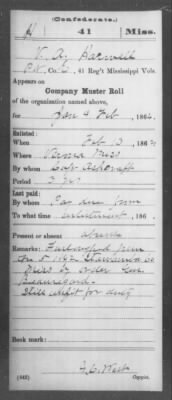 (Confederate.)
H 41 Miss.
V. A. Harwell
Pvt, Co. C, 41 Reg't Mississippi Vols.
Appears on
Company Muster Roll
of the organization named above,
for Jan & Feb, 1864.
Enlisted:
When Feb 13, 186
Where Miss
By whom Capt
Period 3
Last paid:
By whom Pay due from
To what time enlistment, 186 .
Present or absent absent
Remarks: Furloughed from
5 1862
Miss by order Gen
Beauregard.
Still unfit for duty
Book mark:
(642) Copyist.